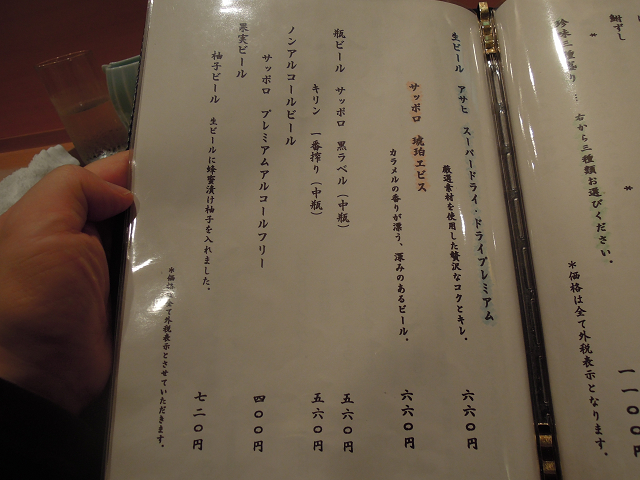 鮒ずし
*
珍味三種盛り … 右から三種類お選びください。
*
一一〇〇円
*価格は全て外税表示となります。
生ビール アサヒ スーパードライ・ドライプレミアム
厳選素材を使用した贅沢なコクとキレ。
六六〇円
サッポロ 琥珀ヱビス
カラメルの香りが漂う、深みのあるビール。
六六〇円
瓶ビール サッポロ 黒ラベル(中瓶)
五六〇円
キリン 一番搾り(中瓶)
五六〇円
ノンアルコールビール
サッポロ プレミアムアルコールフリー
四〇〇円
果実ビール
柚子ビール 生ビールに蜂蜜漬け柚子を入れました。
七二〇円
*価格は全て外税表示とさせていただきます。